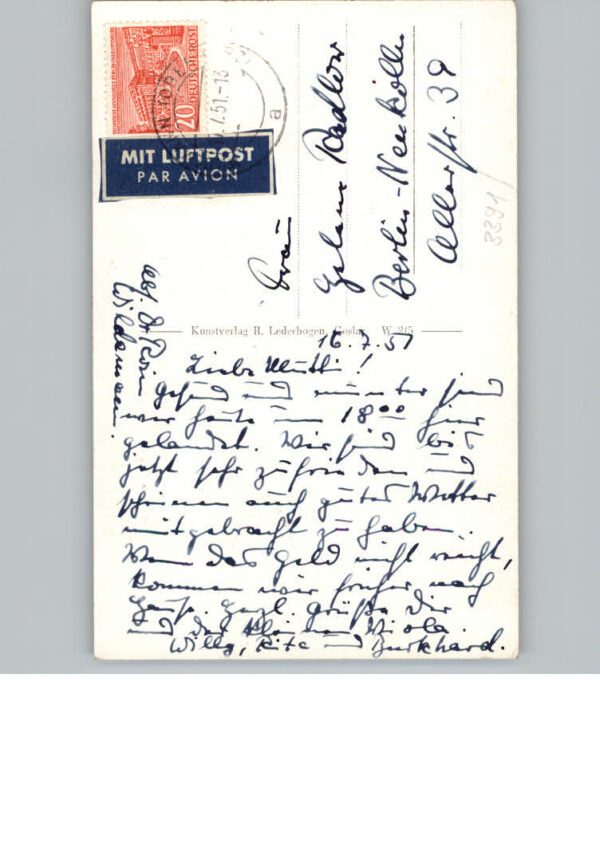 20
DEUTSCHE POST
.7.51.-13
a
MIT LUFTPOST
PAR AVION
Frau
Helene Radlow
Berlin-Neukölln
Allerstr. 39
3391
Kunstverlag R. Lederbogen, Goslar W. 2/5
Abs. Dr
Wildemann.
16.7.51
Liebe Mutti!
Gesund und munter sind
wir heute um 18 00 hier
gelandet. Wir sind bis
jetzt sehr zufrieden und
scheinen auch gutes Wetter
mitgebracht zu haben.
Wenn das Geld nicht reicht,
kommen wir früher nach
Hause. Herzl. Grüße Dir
und der kleinen Viola.
Willy, Rita und Burkhard.